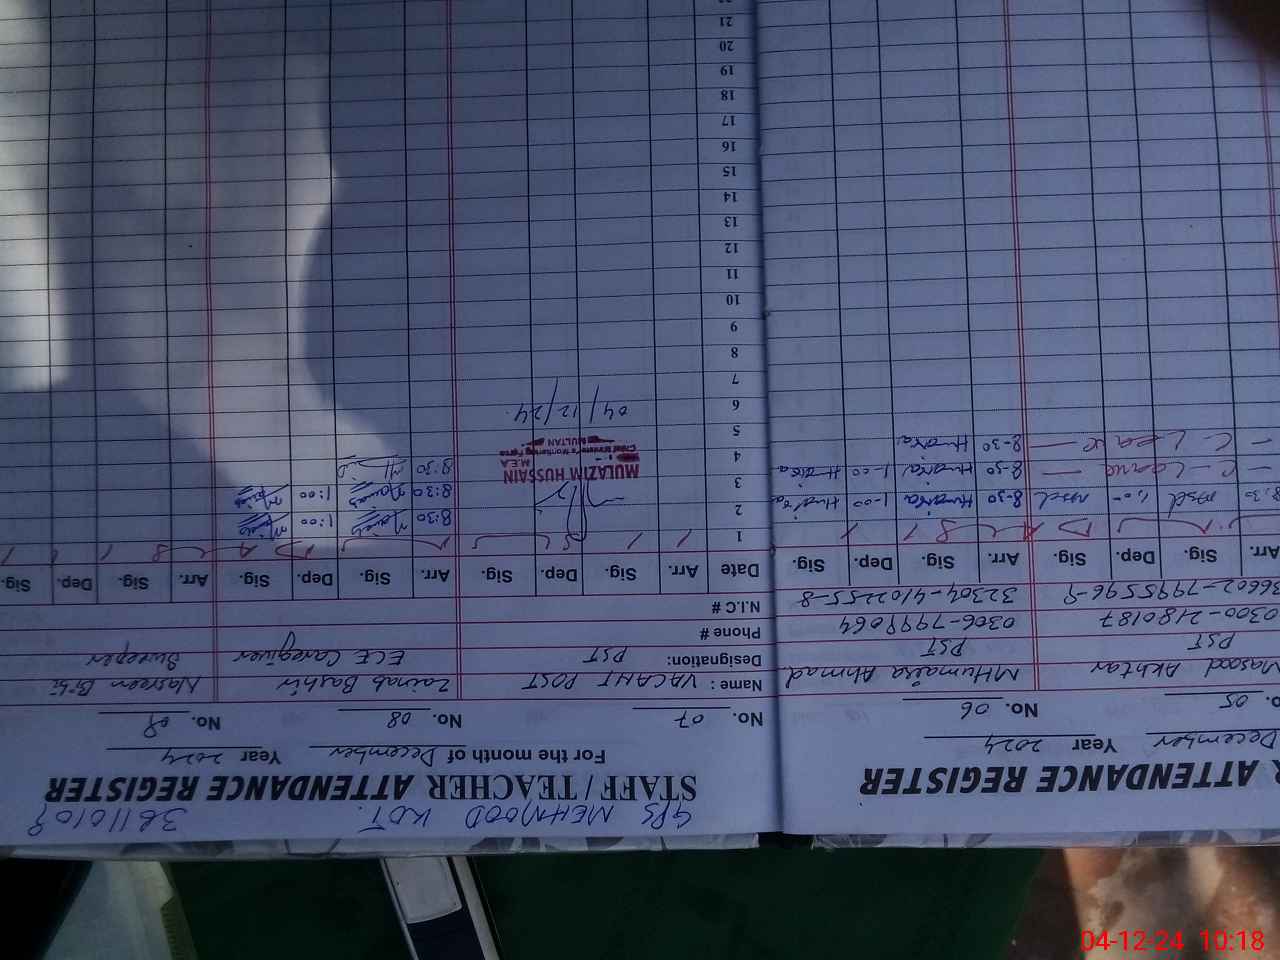 GPS MEHMOOD KOT. 38110109
STAFF / TEACHER ATTENDANCE REGISTER
For the month of December Year 2024
No. 07 No. 08 No. 09
Name : VACANT POST Zainab Bashir Nasreen Bibi
Designation: PST ECE Caregiver Sweeper
Phone #
N.I.C #
Date Arr. Sig. Dep. Sig. Arr. Sig. Dep. Sig. Arr. Sig. Dep. Sig.
1 S U N D A Y
2 8:30 1:00
3 8:30 1:00
4 8:30
MULAZIM HUSSAIN
M.E.A
Chief Minister's Monitoring Force
MULTAN
5
6 04/12/24
7
8
9
10
11
12
13
14
15
16
17
18
19
20
21
22
R ATTENDANCE REGISTER
December Year 2024
No. 05 No. 06
Masood Akhtar M Humaira Ahmad
PST PST
0300-2180187 0306-7999064
36602-7995596-9 32304-4102255-8
Arr. Sig. Dep. Sig. Arr. Sig. Dep. Sig.
8:30 1:00 8-30 Humaira 1-00
- C-Leave - 8-30 1-00
- C-Leave - 8-30
04-12-24 10:18